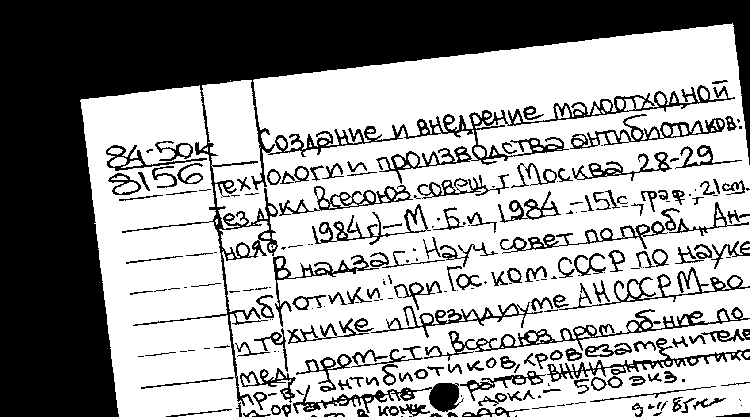 84-50к
8156
Создание и внедрение малоотходной
технологии производства антибиотиков:
Тез. докл. Всесоюз. совещ., г. Москва, 28-29
нояб. 1984г.)-М.: Б.и, 1984.-151с., граф.; 21cm.
В надзаг.: Науч. совет по пробл. „Ан-
тибиотики" при Гос. ком. СССР по науке
и технике и Президиуме АН СССР, М-во
мед. пром-сти, Всесоюз. пром. об-ние по
пр-ву антибиотиков, кровезаменителе
и органопрепаратов, ВНИИ антибиотико
в конце докл. - 500 экз.